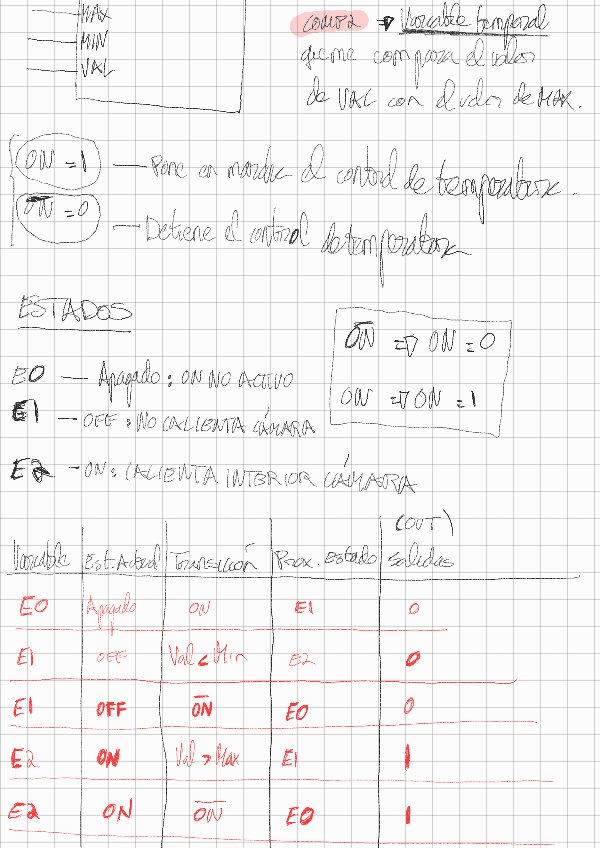 MAX
MIN
VAL
COMP2 ⇒ Variable temporal
que me compara el valor
de VAL con el valor de MAX.
ON = 1 — Pone en marcha el control de temperatura.
O̅N̅ = 0 — Detiene el control de temperatura
ESTADOS
O̅N̅ ⇒ ON = 0
ON ⇒ ON = 1
E0 — Apagado : ON NO ACTIVO
E1 — OFF : NO CALIENTA CÁMARA
E2 - ON : CALIENTA INTERIOR CÁMARA
(OUT)
Variable Est. Actual Transición Prox. estado Salidas
E0 Apagado ON E1 0
E1 OFF Val < Min E2 0
E1 OFF O̅N̅ E0 0
E2 ON Val > Max E1 1
E2 ON O̅N̅ E0 1